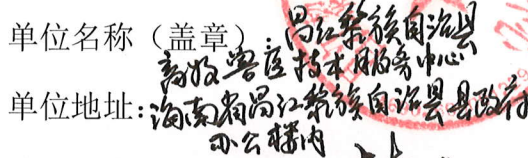 单位名称（盖章）：昌江黎族自治县
畜牧兽医技术服务中心
单位地址：海南省昌江黎族自治县县政府
办公楼内